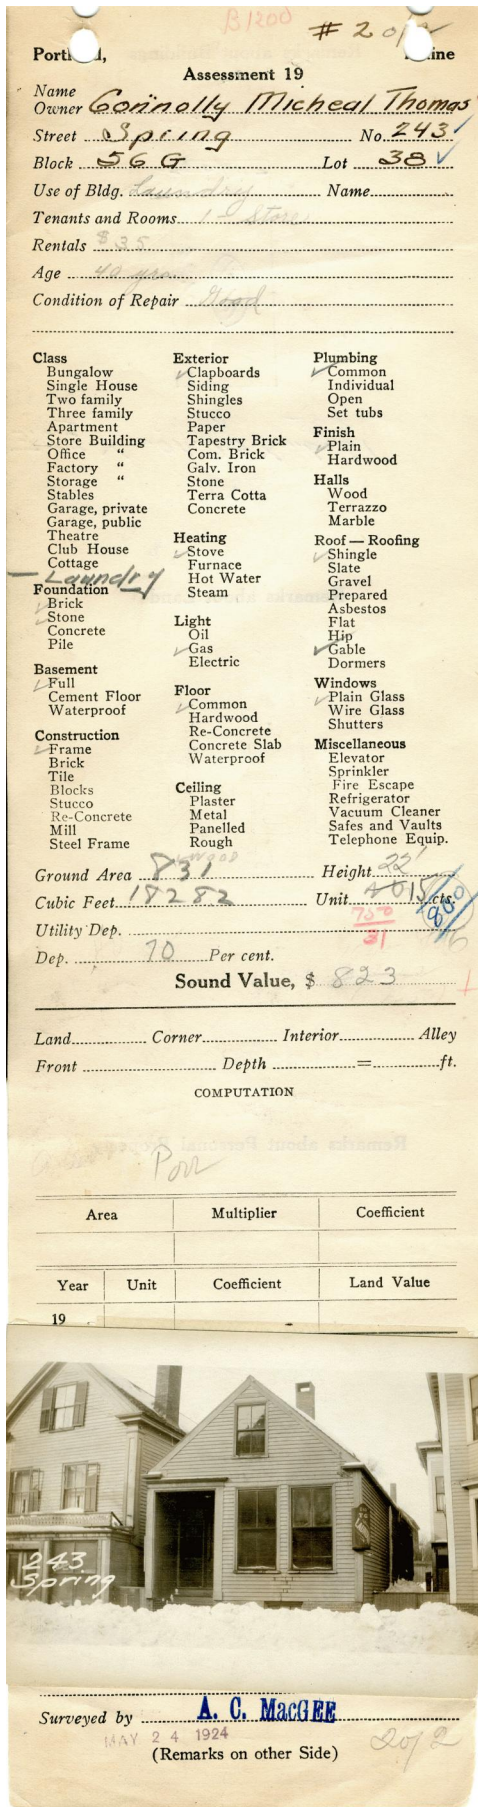 B1200
# 2 of 2
Portland, Maine
Assessment 19
Name
Owner Connolly Micheal Thomas
Street Spring No. 243
Block 56 G Lot 38
Use of Bldg. Laundry Name
Tenants and Rooms 1 - Store
Rentals $35
Age 40 yrs
Condition of Repair Good
Class
Bungalow
Single House
Two family
Three family
Apartment
Store Building
Office "
Factory "
Storage "
Stables
Garage, private
Garage, public
Theatre
Club House
Cottage
— Laundry
Foundation
Brick
Stone
Concrete
Pile
Basement
Full
Cement Floor
Waterproof
Construction
Frame
Brick
Tile
Blocks
Stucco
Re-Concrete
Mill
Steel Frame
Exterior
Clapboards
Siding
Shingles
Stucco
Paper
Tapestry Brick
Com. Brick
Galv. Iron
Stone
Terra Cotta
Concrete
Heating
Stove
Furnace
Hot Water
Steam
Light
Oil
Gas
Electric
Floor
Common
Hardwood
Re-Concrete
Concrete Slab
Waterproof
Ceiling
Plaster
Metal
Panelled
Rough
Wood
Plumbing
Common
Individual
Open
Set tubs
Finish
Plain
Hardwood
Halls
Wood
Terrazzo
Marble
Roof — Roofing
Shingle
Slate
Gravel
Prepared
Asbestos
Flat
Hip
Gable
Dormers
Windows
Plain Glass
Wire Glass
Shutters
Miscellaneous
Elevator
Sprinkler
Fire Escape
Refrigerator
Vacuum Cleaner
Safes and Vaults
Telephone Equip.
Ground Area 831 Height 22'
Cubic Feet 18282 Unit 15 cts.
800
750
31
Utility Dep.
Dep. 70 Per cent.
Sound Value, $ 823
Land Corner Interior Alley
Front Depth = ft.
COMPUTATION
Area Multiplier Coefficient
Year Unit Coefficient Land Value
19
243
Spring
Surveyed by A. C. MacGEE
MAY 24 1924
(Remarks on other Side)
2 of 2